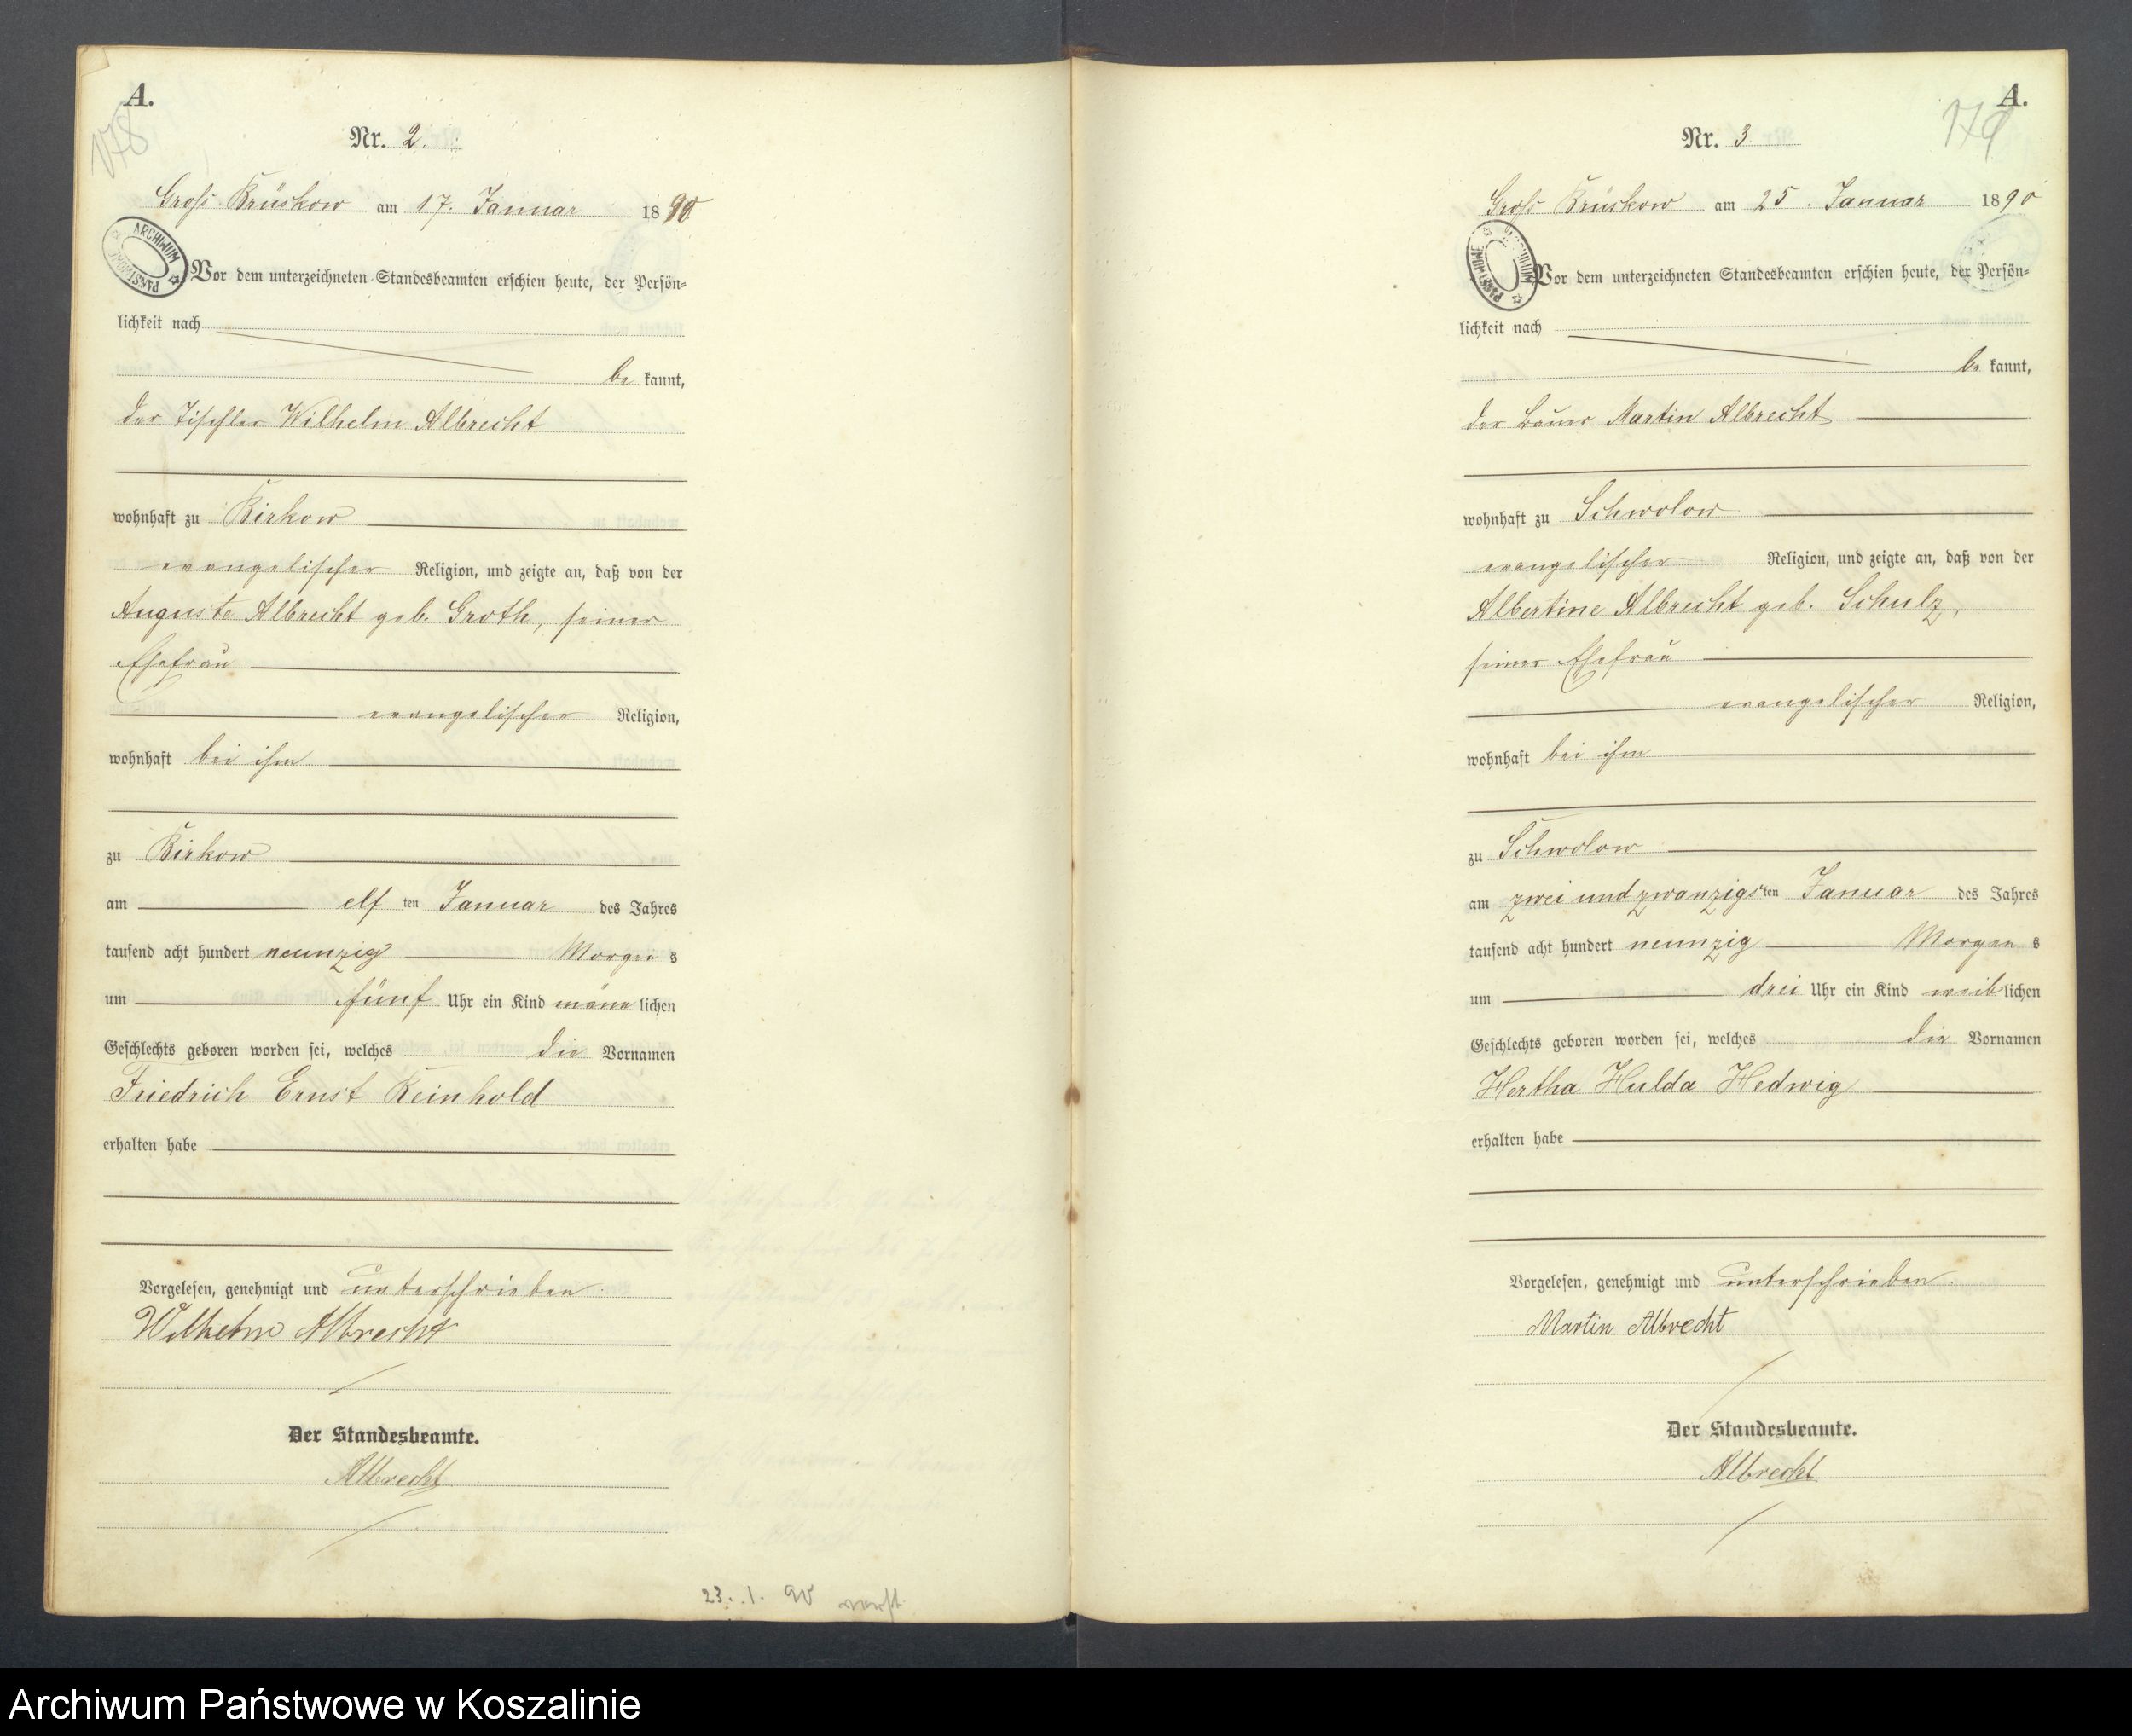 A.
178
Nr. 2.
Groß Brüskow am 17. Januar 1890
ARCHIWUM PAŃSTWOWE
Vor dem unterzeichneten Standesbeamten erschien heute, der Persön-
lichkeit nach
be kannt,
der Tischler Wilhelm Albrecht
wohnhaft zu Birkow
evangelischer Religion, und zeigte an, daß von der
Auguste Albrecht geb. Groth, seiner
Ehefrau
evangelischer Religion,
wohnhaft bei ihm
zu Birkow
am elf ten Januar des Jahres
tausend acht hundert neunzig Morgen s
um fünf Uhr ein Kind männ lichen
Geschlechts geboren worden sei, welches die Vornamen
Friedrich Ernst Reinhold
erhalten habe
Vorgelesen, genehmigt und unterschrieben.
Wilhelm Albrecht
Der Standesbeamte.
Albrecht
23. 1. 90
A.
179
Nr. 3
Groß Brüskow am 25. Januar 1890
ARCHIWUM PAŃSTWOWE
Vor dem unterzeichneten Standesbeamten erschien heute, der Persön-
lichkeit nach
be kannt,
der Bauer Martin Albrecht
wohnhaft zu Schwolow
evangelischer Religion, und zeigte an, daß von der
Albertine Albrecht geb. Schulz,
seiner Ehefrau
evangelischer Religion,
wohnhaft bei ihm
zu Schwolow
am zwei und zwanzigsten Januar des Jahres
tausend acht hundert neunzig Morgen s
um drei Uhr ein Kind weib lichen
Geschlechts geboren worden sei, welches die Vornamen
Hertha Hulda Hedwig
erhalten habe
Vorgelesen, genehmigt und unterschrieben.
Martin Albrecht
Der Standesbeamte.
Albrecht
Archiwum Państwowe w Koszalinie